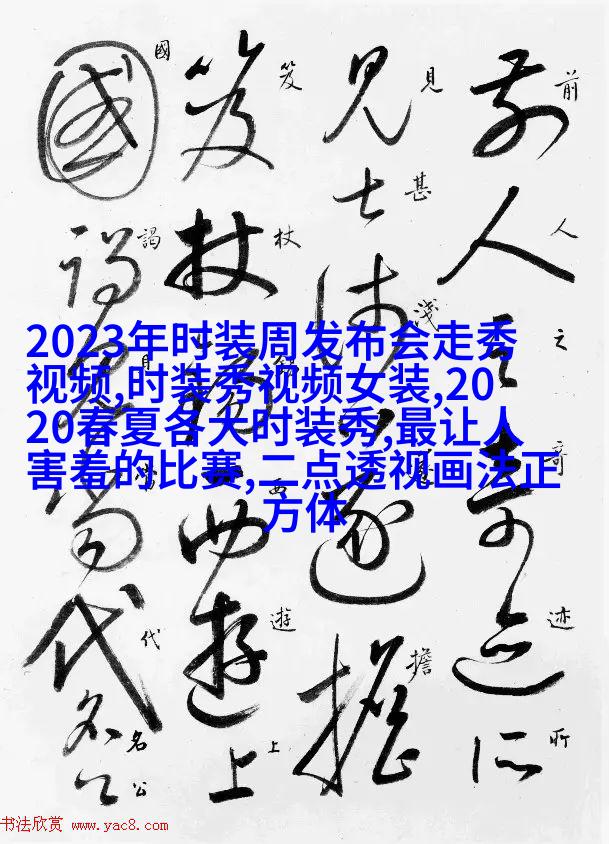 前人之奇迹所
見甚淺遂擔
笈杖錫西遊上
國謁見當代名公
2023年时装周发布会走秀
视频,时装秀视频女装,20
20春夏各大时装秀,最让人
害羞的比赛,二点透视画法正
方体
书法欣赏 www.yac8.com